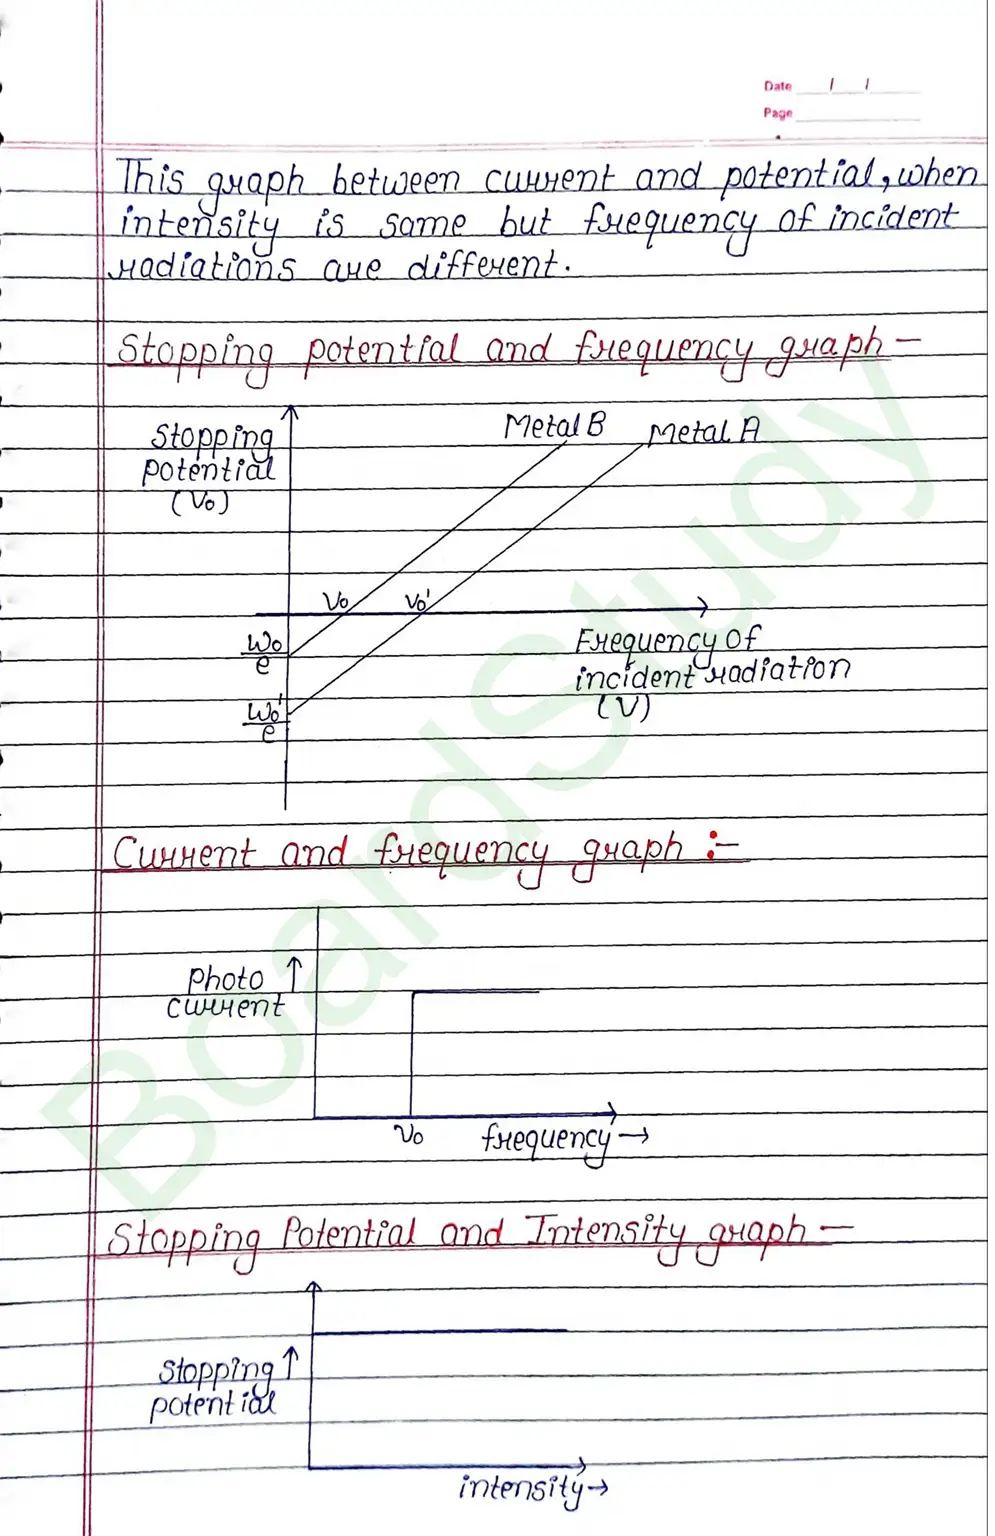 Date / /
Page
This graph between current and potential, when
intensity is same but frequency of incident
radiations are different.
Stopping potential and frequency graph —
Metal B
Metal A
Stopping
potential
(V₀)
ν₀
ν₀'
W₀/e
W₀'/e
Frequency of
incident radiation
(ν)
Current and frequency graph :-
Photo ↑
current
ν₀
frequency →
Stopping Potential and Intensity graph —
Stopping ↑
potential
intensity →
BoardStudy